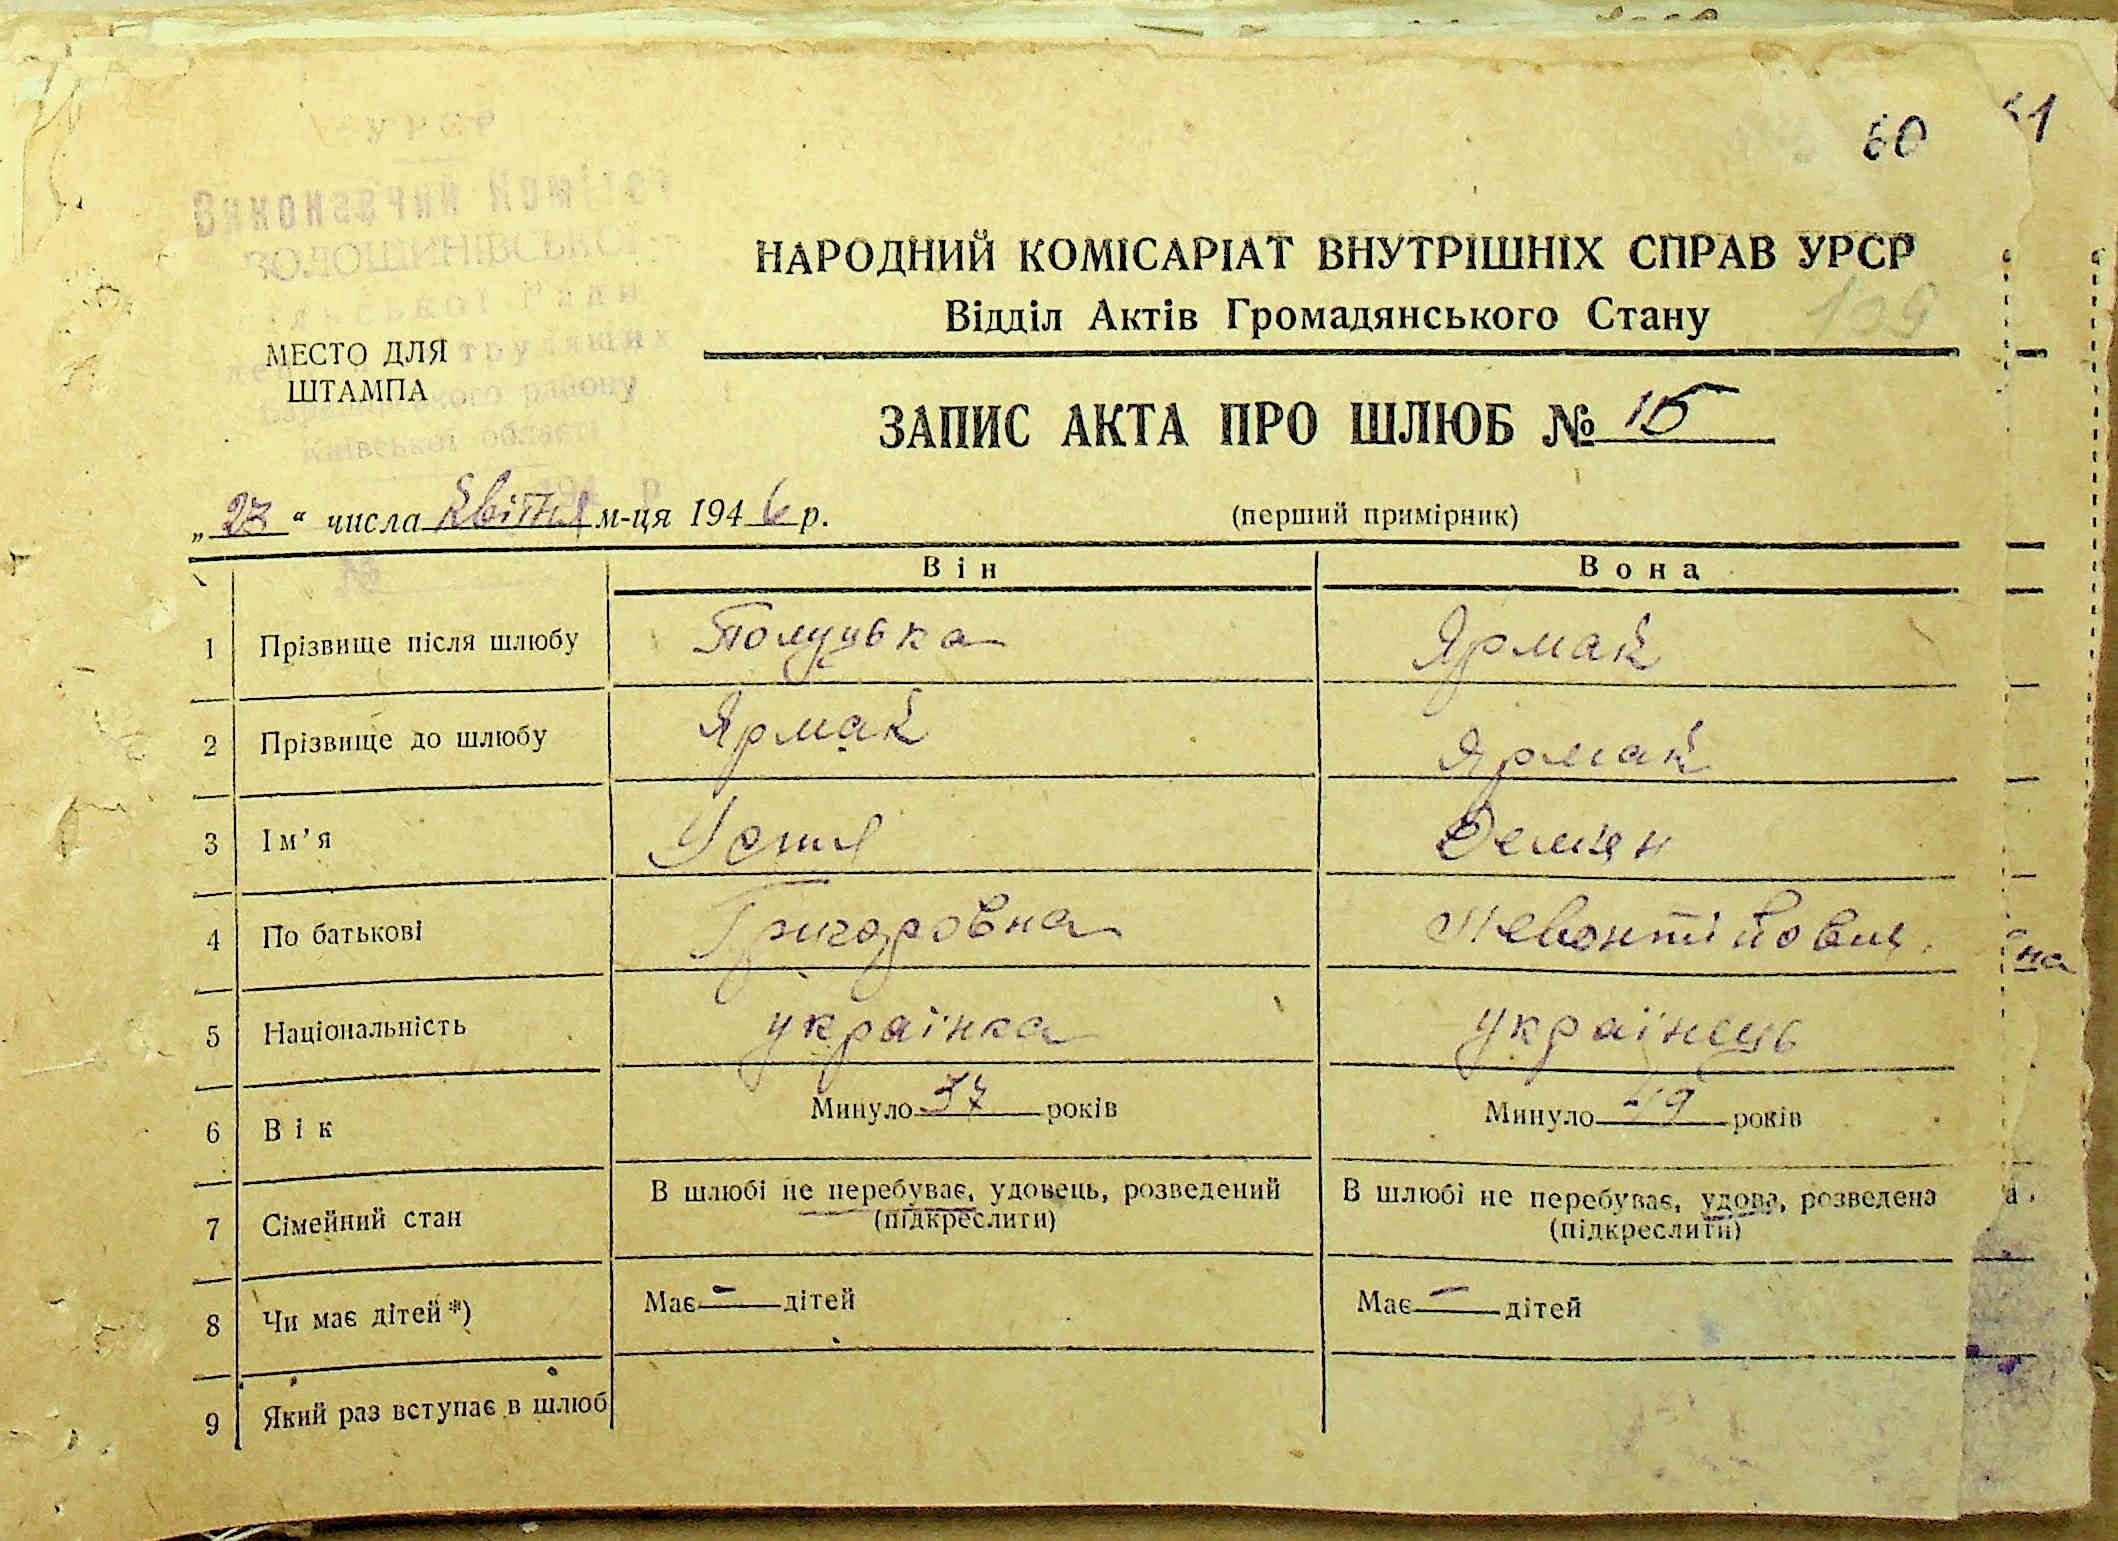 УРСР
60
51
Виконавчий Комітет
ЗОЛОШИНІВСЬКОЇ
НАРОДНИЙ КОМІСАРІАТ ВНУТРІШНІХ СПРАВ УРСР
Відділ Актів Громадянського Стану
109
сільської Ради
МЕСТО ДЛЯ
ШТАМПА
депутатів трудящих
району
Київської області
194 р
ЗАПИС АКТА ПРО ШЛЮБ № 15
„ 23 “ числа квітня м-ця 1946 р.
(перший примірник)
№
Він
Вона
1 Прізвище після шлюбу Ярмак
2 Прізвище до шлюбу Ярмак Ярмак
3 Ім’я Устя Демян
4 По батькові Григоровна Левонтійович
на
5 Національність українка українець
6 Вік Минуло 37 років Минуло 49 років
7 Сімейний стан В шлюбі не перебуває, удовець, розведений (підкреслити) В шлюбі не перебуває, удова, розведена (підкреслити)
8 Чи має дітей *) Має — дітей Має — дітей
9 Який раз вступає в шлюб